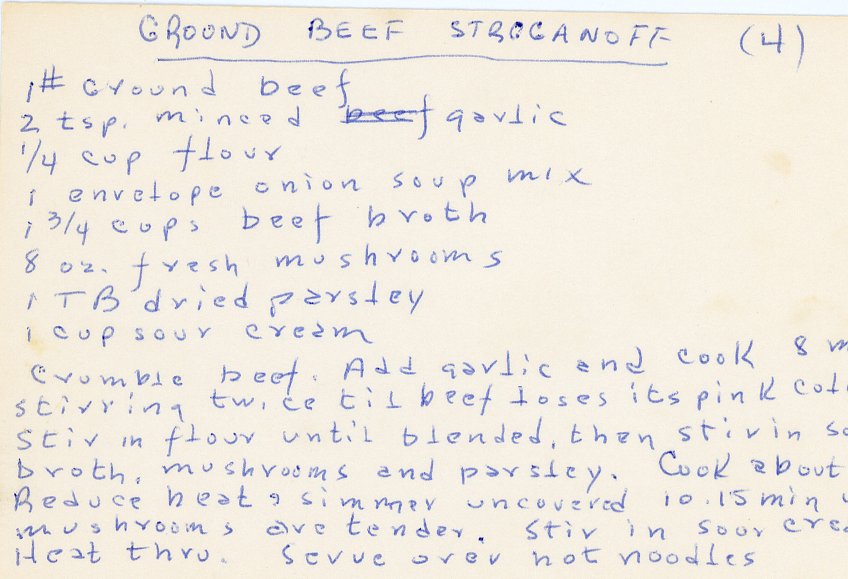 GROUND BEEF STROGANOFF (4)
1# Ground beef
2 tsp. minced garlic
1/4 cup flour
1 envelope onion soup mix
1 3/4 cups beef broth
8 oz. fresh mushrooms
1 TB dried parsley
1 cup sour cream
Crumble beef. Add garlic and cook 8 m
stirring twice til beef loses its pink col
Stir in flour until blended, then stir in so
broth, mushrooms and parsley. Cook about
Reduce heat & simmer uncovered 10-15 min
mushrooms are tender. Stir in sour crea
Heat thru. Serve over hot noodles